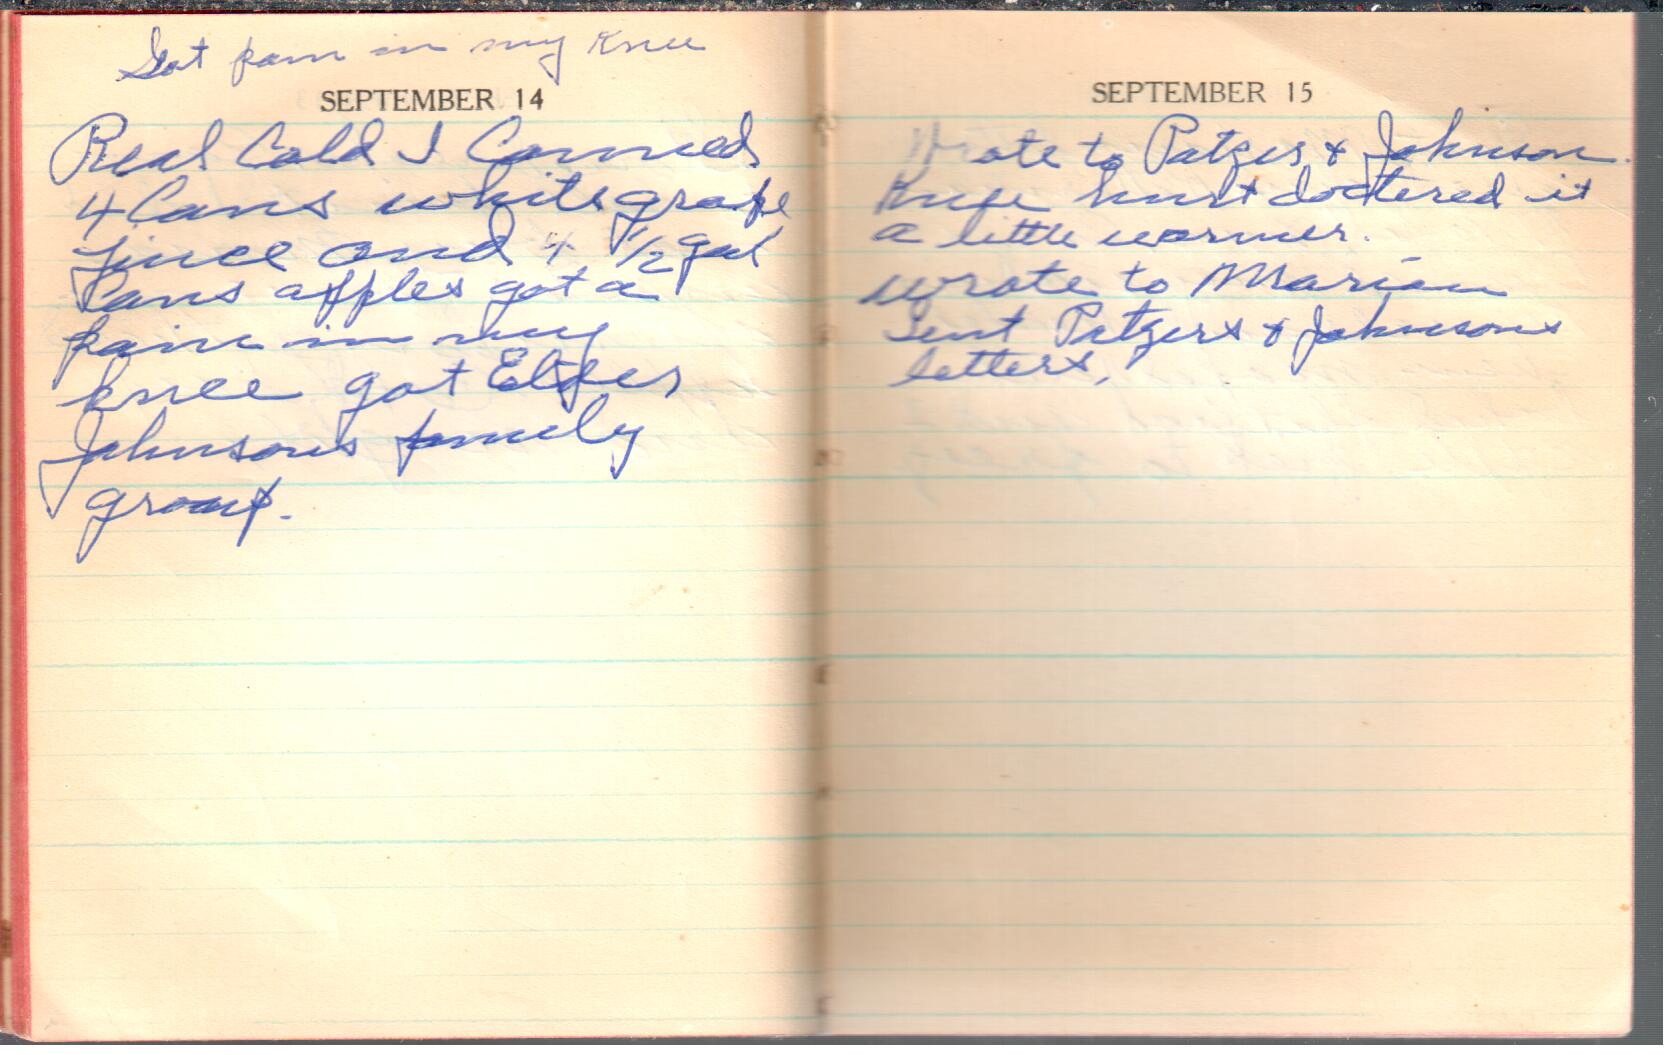 Got pain in my Knee
SEPTEMBER 14
Real Cold I Canned
4 Cans white grape
juice and 4 1/2 gal
Cans apples got a
pain in my
knee got Elder
Johnsons family
group.
SEPTEMBER 15
Wrote to Patzers & Johnson
Knee hurt doctered it
a little warmer.
wrote to Marian
sent Patzers & Johnsons
letters,